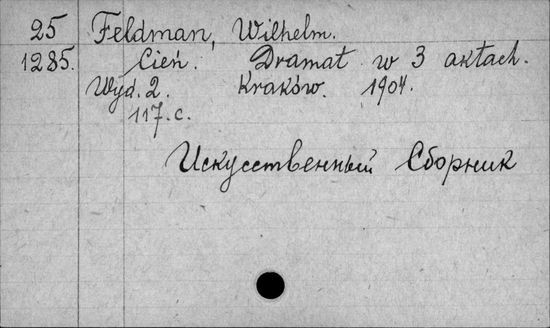 25 Feldman, Wilhelm.
1285. Cień. Dramat w 3 aktach.
Wyd. 2. Kraków. 1904.
117.c.
Искусственный Сборник